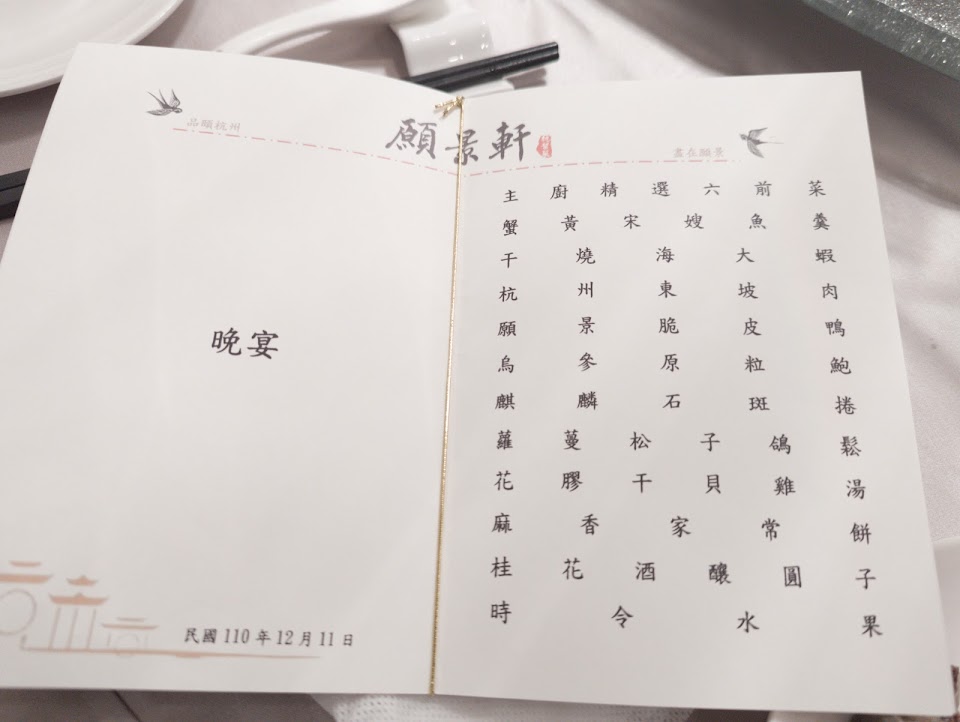 品顒杭州
願景軒
盡在願景
晚宴
民國 110 年 12 月 11 日
主廚精選六前菜
蟹黃宋嫂魚羹
干燒海大蝦
杭州東坡肉
願景脆皮鴨
烏參原粒鮑
麒麟石斑捲
蘿蔓松子鴿鬆
花膠干貝雞湯
麻香家常餅
桂花酒釀圓子
時令水果